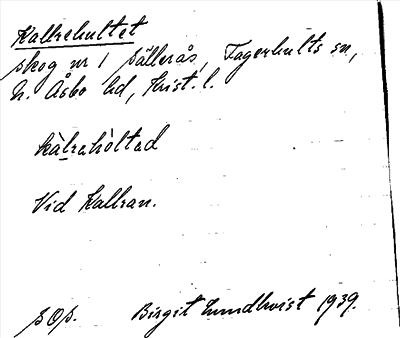 Kallrehultet
skog nr 1 Sällerås, Fagerhults sn,
N. Åsbo hd, Krist. l.
kàlrahòltad
Vid Kallran.
sOp. Birgit Lundkvist 1939.